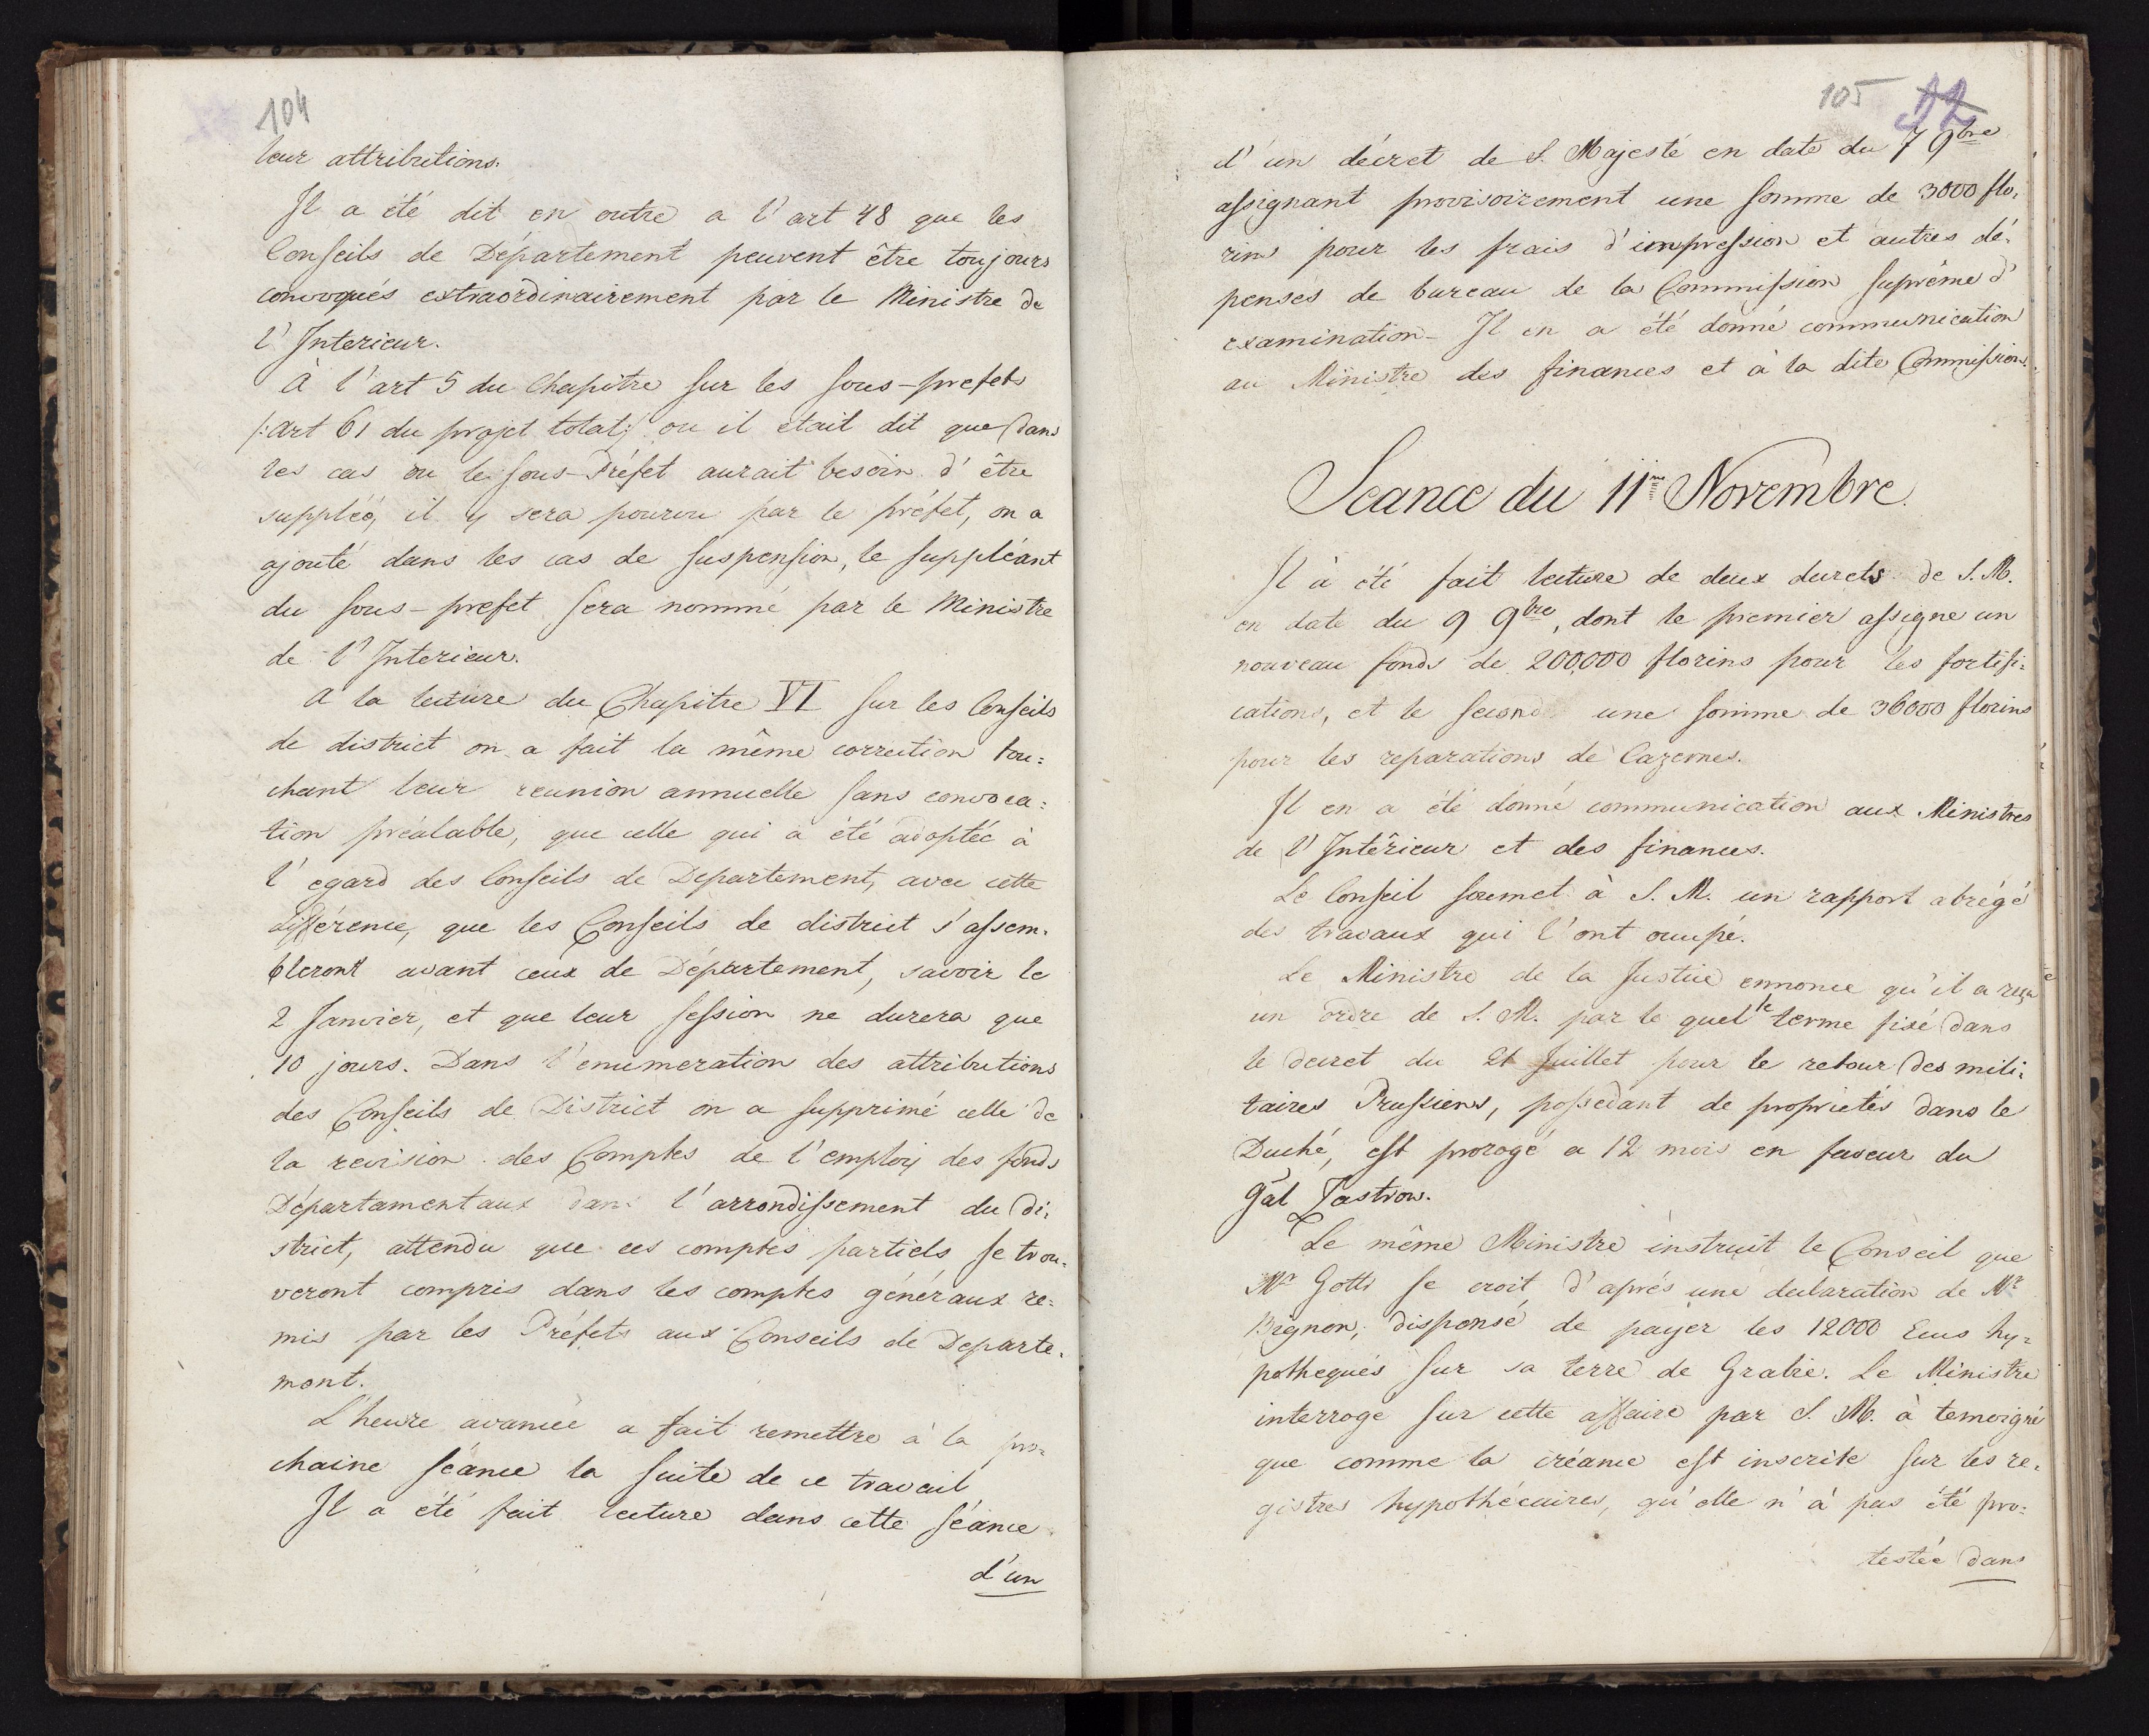 104
leur attributions.
Il a été dit en outre a l'art 48 que les
Conseils de Département peuvent être toujours
convoqués extraordinairement par le Ministre de
l'Interieur.
À l'art 5 du Chapitre sur les sous-prefets
/:art 61 du projet total:/ ou il etait dit que dans
les cas ou le sous-Préfet aurait besoin d'être
suppléé, il y sera pourvu par le préfet, on a
ajouté dans les cas de suspension, le suppléant
du sous-prefet sera nommé par le Ministre
de l'Interieur.
A la lecture du Chapitre VI sur les Conseils
de district on a fait la même correction tou=
chant leur reunion annuelle sans convoca=
tion préalable, que celle qui a été adoptée à
l'egard des Conseils de Departement, avec cette
différence, que les Conseils de district s'assem=
bleront avant ceux de Département, savoir le
2 Janvier, et que leur session ne durera que
10 jours. Dans l'enumeration des attributions
des Conseils de District on a supprimé celle de
la revision des Comptes de l'emploi des fonds
Départamentaux dans l'arrondissement du di=
strict, attendu que ces comptes partiels se trou=
veront compris dans les comptes généraux re=
mis par les Préfets aux Conseils de Departe=
mont.
L'heure avancée a fait remettre à la pro=
chaine séance la suite de ce travail
Il a été fait lecture dans cette séance
d'un
105 52
d'un décret de S. Majesté en date du 7 9bre
assignant provisoirement une somme de 3000 flo=
rins pour les frais d'impression et autres dé=
penses de bureau de la Commission suprême d'
examination - Il en a été donné communication
au Ministre des finances et à la dite Commission.
Seance du 11me Novembre.
Il à été fait lecture de deux decrets de S. M.
en date du 9 9bre, dont le premier assigne un
nouveau fonds de 200,000 florins pour les fortifi=
cations, et le second une somme de 36000 florins
pour les reparations de Cazernes.
Il en a été donné communication aux Ministres
de l'Intêrieur et des finances.
Le Conseil soumet à S. M. un rapport abrégé
des travaux qui l'ont occupé.
Le Ministre de la Justice ennonce qu'il a reçu
un ordre de S. M. par le quel le terme fixé dans
le decret du 21 Juillet pour le retour des mili=
taires Prussiens, possedant de proprietés dans le
Duché, est prorogé a 12 mois en faveur du
Gal Zastrow.
Le même Ministre instruit le Conseil que
Mr Gotts se croit, d'aprés une declaration de Mr
Bignon, disponsé de payer les 12000 Ecus hy=
pothequés sur sa terre de Grabie. Le Ministre
interrogé sur cette affaire par S. M. à temoigné
que comme la créance est inscrite sur les re=
gistres hypothécaires, qu'elle n'à pas été pro=
testée dans